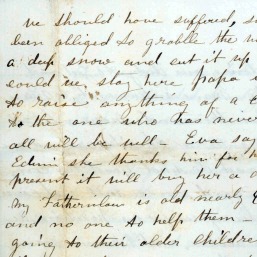 we should have suffered, s
been obliged to grabble the
a deep snow and eat it up
could we stay here Papa
to raise anything of a
to the one who has never
all will be well - Eva say
Edwin she thanks him for h
present it will buy her a d
my Fatherinlaw is old nearly
and no one to help them -
going to their older childre